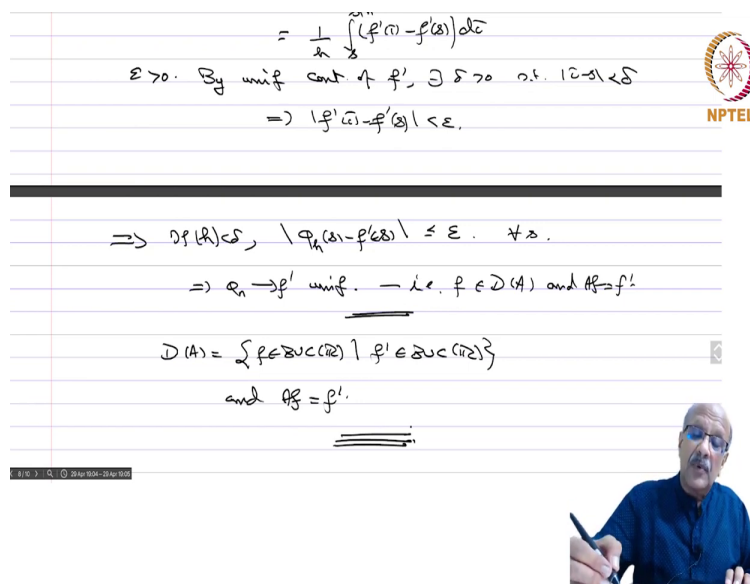 = 1/h ∫ₛ [f'(τ) - f'(s)] dτ
ε>0. By unif cont. of f', ∃ δ>0 s.t. |τ-s|<δ
=> |f'(τ) - f'(s)| < ε.
NPTEL
=> If |h|<δ, |φₕ(s) - f'(s)| ≤ ε. ∀ s.
=> φₕ → f' unif. — i.e. f ∈ D(A) and Af = f'.
D(A) = {f ∈ BUC(ℝ) | f' ∈ BUC(ℝ)}
and Af = f'.
8/10 29 Apr 19:04 - 29 Apr 19:05